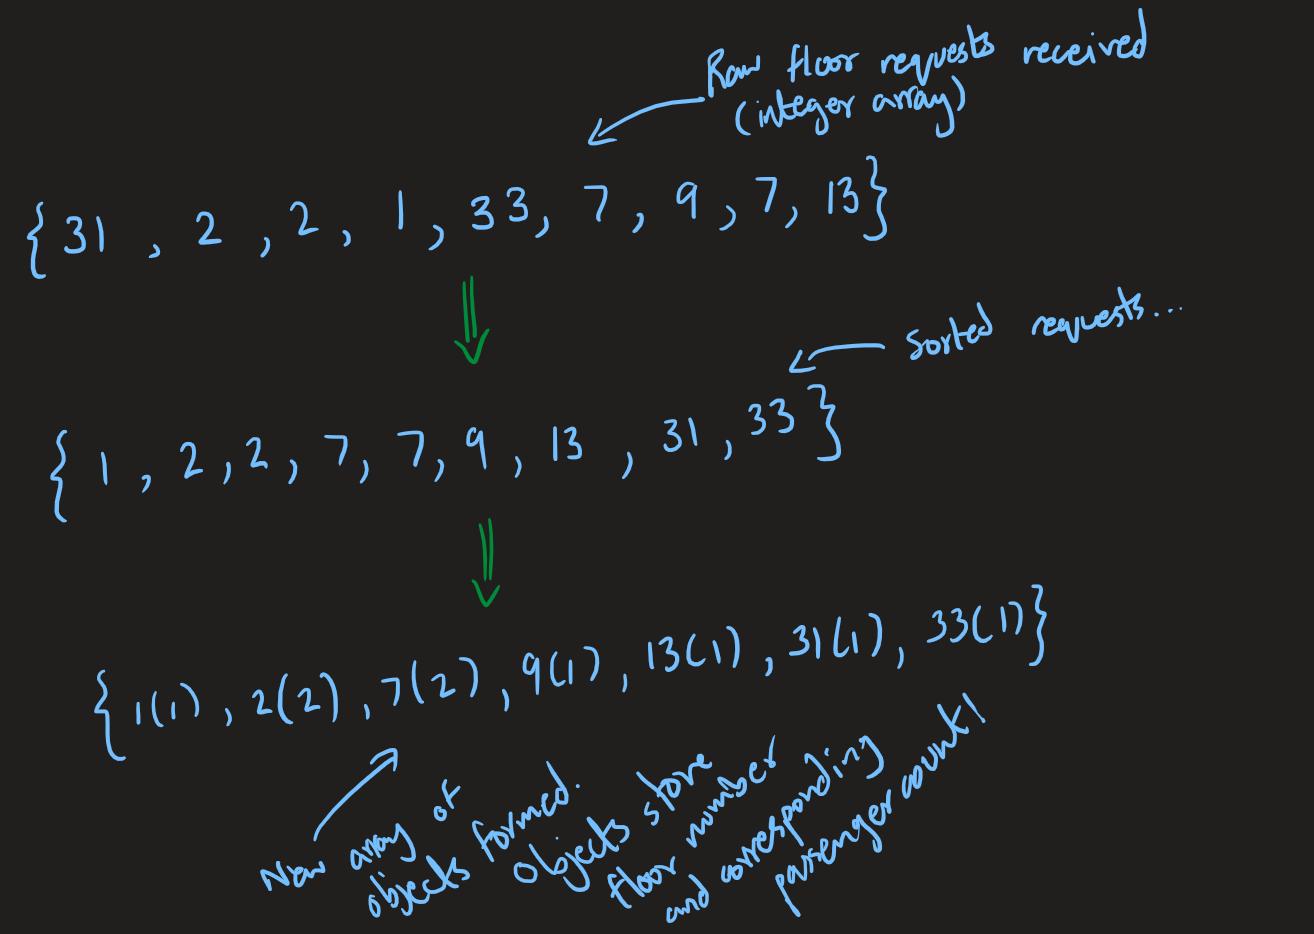 Raw floor requests received
(integer array)
{31 , 2 , 2 , 1 , 33, 7 , 9 , 7, 13}
Sorted requests...
{ 1 , 2 , 2 , 7 , 7, 9 , 13 , 31 , 33 }
{ 1(1) , 2(2) , 7(2) , 9(1) , 13(1) , 31(1) , 33(1) }
New array of
objects formed.
Objects store
floor number
and corresponding
passenger count!